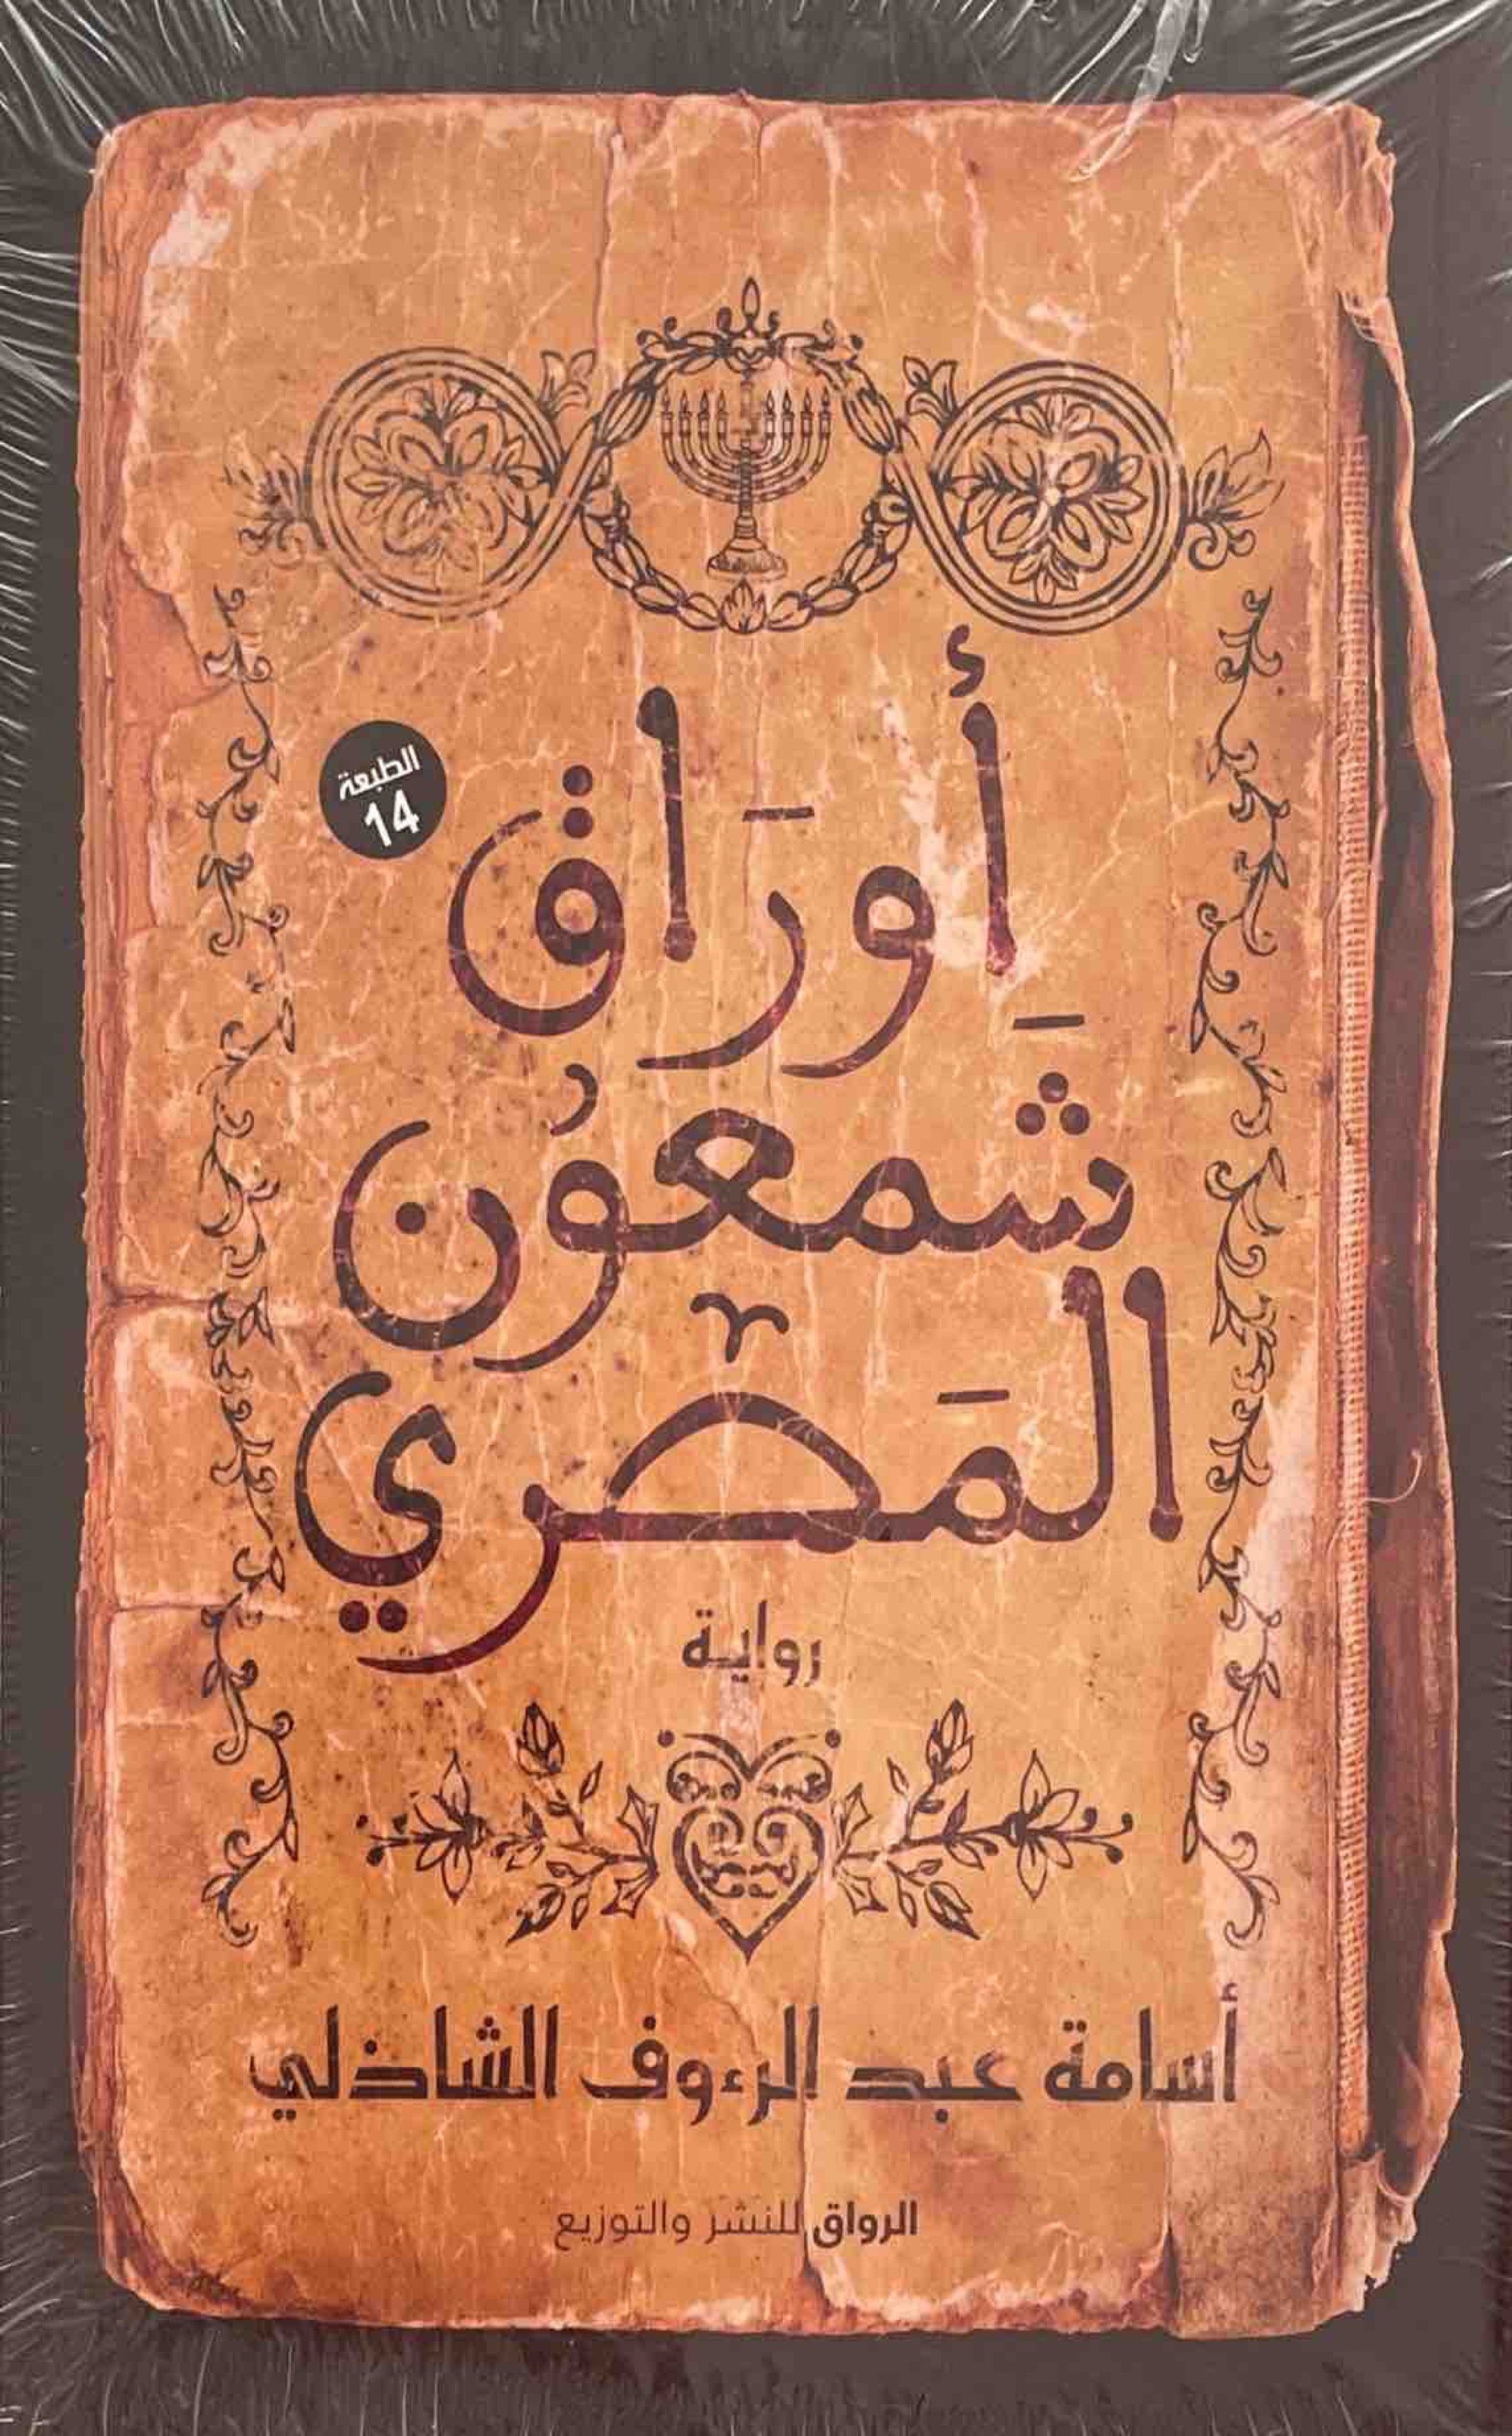 الطبعة
14
أَورَاق
شَمعوُن
المَصري
رواية
أسامة عبد الرءوف الشاذلي
الرواق للنشر والتوزيع